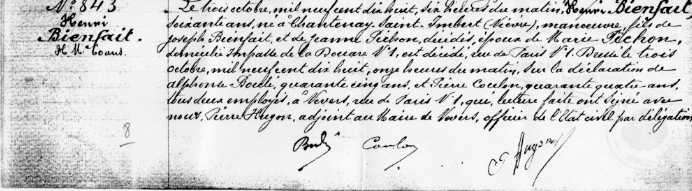 N° 843
Henri
Bienfait.
Le trois octobre, mil neuf cent dix huit, six heures du matin, Henri Bienfait
soixante ans, né à Chantenay Saint Imbert (Nièvre), manœuvre, fils de
Joseph Bienfait, et de Jeanne Pichon, décédés, époux de Marie Pichon,
domicilié Impasse de la N° 1, est décédé, rue de Paris N° 1. Dressé le trois
octobre, mil neuf cent dix huit, onze heures du matin, sur la déclaration de
Alphonse quarante cinq ans, et Pierre Coulon, quarante quatre ans,
tous deux employés, à Nevers, rue de Paris N° 1, qui, lecture faite ont signé avec
nous, Pierre Hugon, adjoint au Maire de Nevers, officier de l'Etat civil par délégation
8
Coulon
P. Hugon